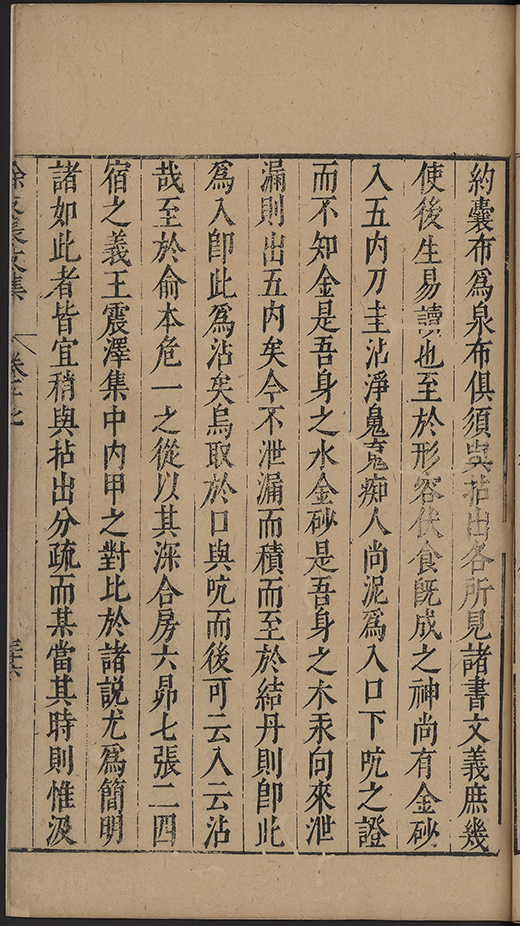 約囊布爲泉布俱須與拈出各所見諸書文義庶幾
使後生易讀也至於形容伏食旣成之神尚有金砂
入五内刀圭沾淨䰟魂痴人尚泥爲入口下吭之證
而不知金是吾身之水金砂是吾身之木汞向來泄
漏則出五内矣今不泄漏而積而至於結丹則卽此
爲入卽此爲沾矣烏取於口與吭而後可云入云沾
哉至於俞本危一之從以其深合房六昴七張二四
宿之義王震澤集中内甲之對比於諸説尤爲簡明
諸如此者皆宜稍與拈出分疏而某當其時則惟汲
徐文長文集 卷三之 三十六